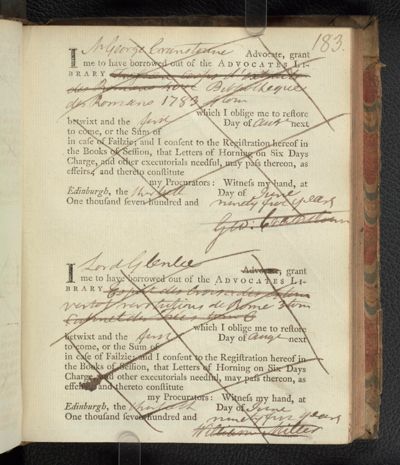 183.
I Mr George Cranstoune Advocate, grant
me to have borrowed out of the ADVOCATES LI-
BRARY Bibliotheque
des Romans 1783
which I oblige me to reſtore
betwixt and the first Day of Augt next
to come, or the Sum of
in caſe of Failzie; and I conſent to the Regiſtration hereof in
the Books of Seſſion, that Letters of Horning on Six Days
Charge, and other executorials needful, may paſs thereon, as
effeirs, and thereto conſtitute
my Procurators: Witneſs my hand, at
Edinburgh, the thirtieth Day of June
One thouſand ſeven hundred and ninety five years
Geo: Cranstoun
I Lord Glenlee Advocate, grant
me to have borrowed out of the ADVOCATES LI-
BRARY
which I oblige me to reſtore
betwixt and the first Day of Augt next
to come, or the Sum of
in caſe of Failzie; and I conſent to the Regiſtration hereof in
the Books of Seſſion, that Letters of Horning on Six Days
Charge, and other executorials needful, may paſs thereon, as
and thereto conſtitute
my Procurators: Witneſs my hand, at
Edinburgh, the thirtieth Day of June
One thouſand ſeven hundred and ninety five years
William Miller